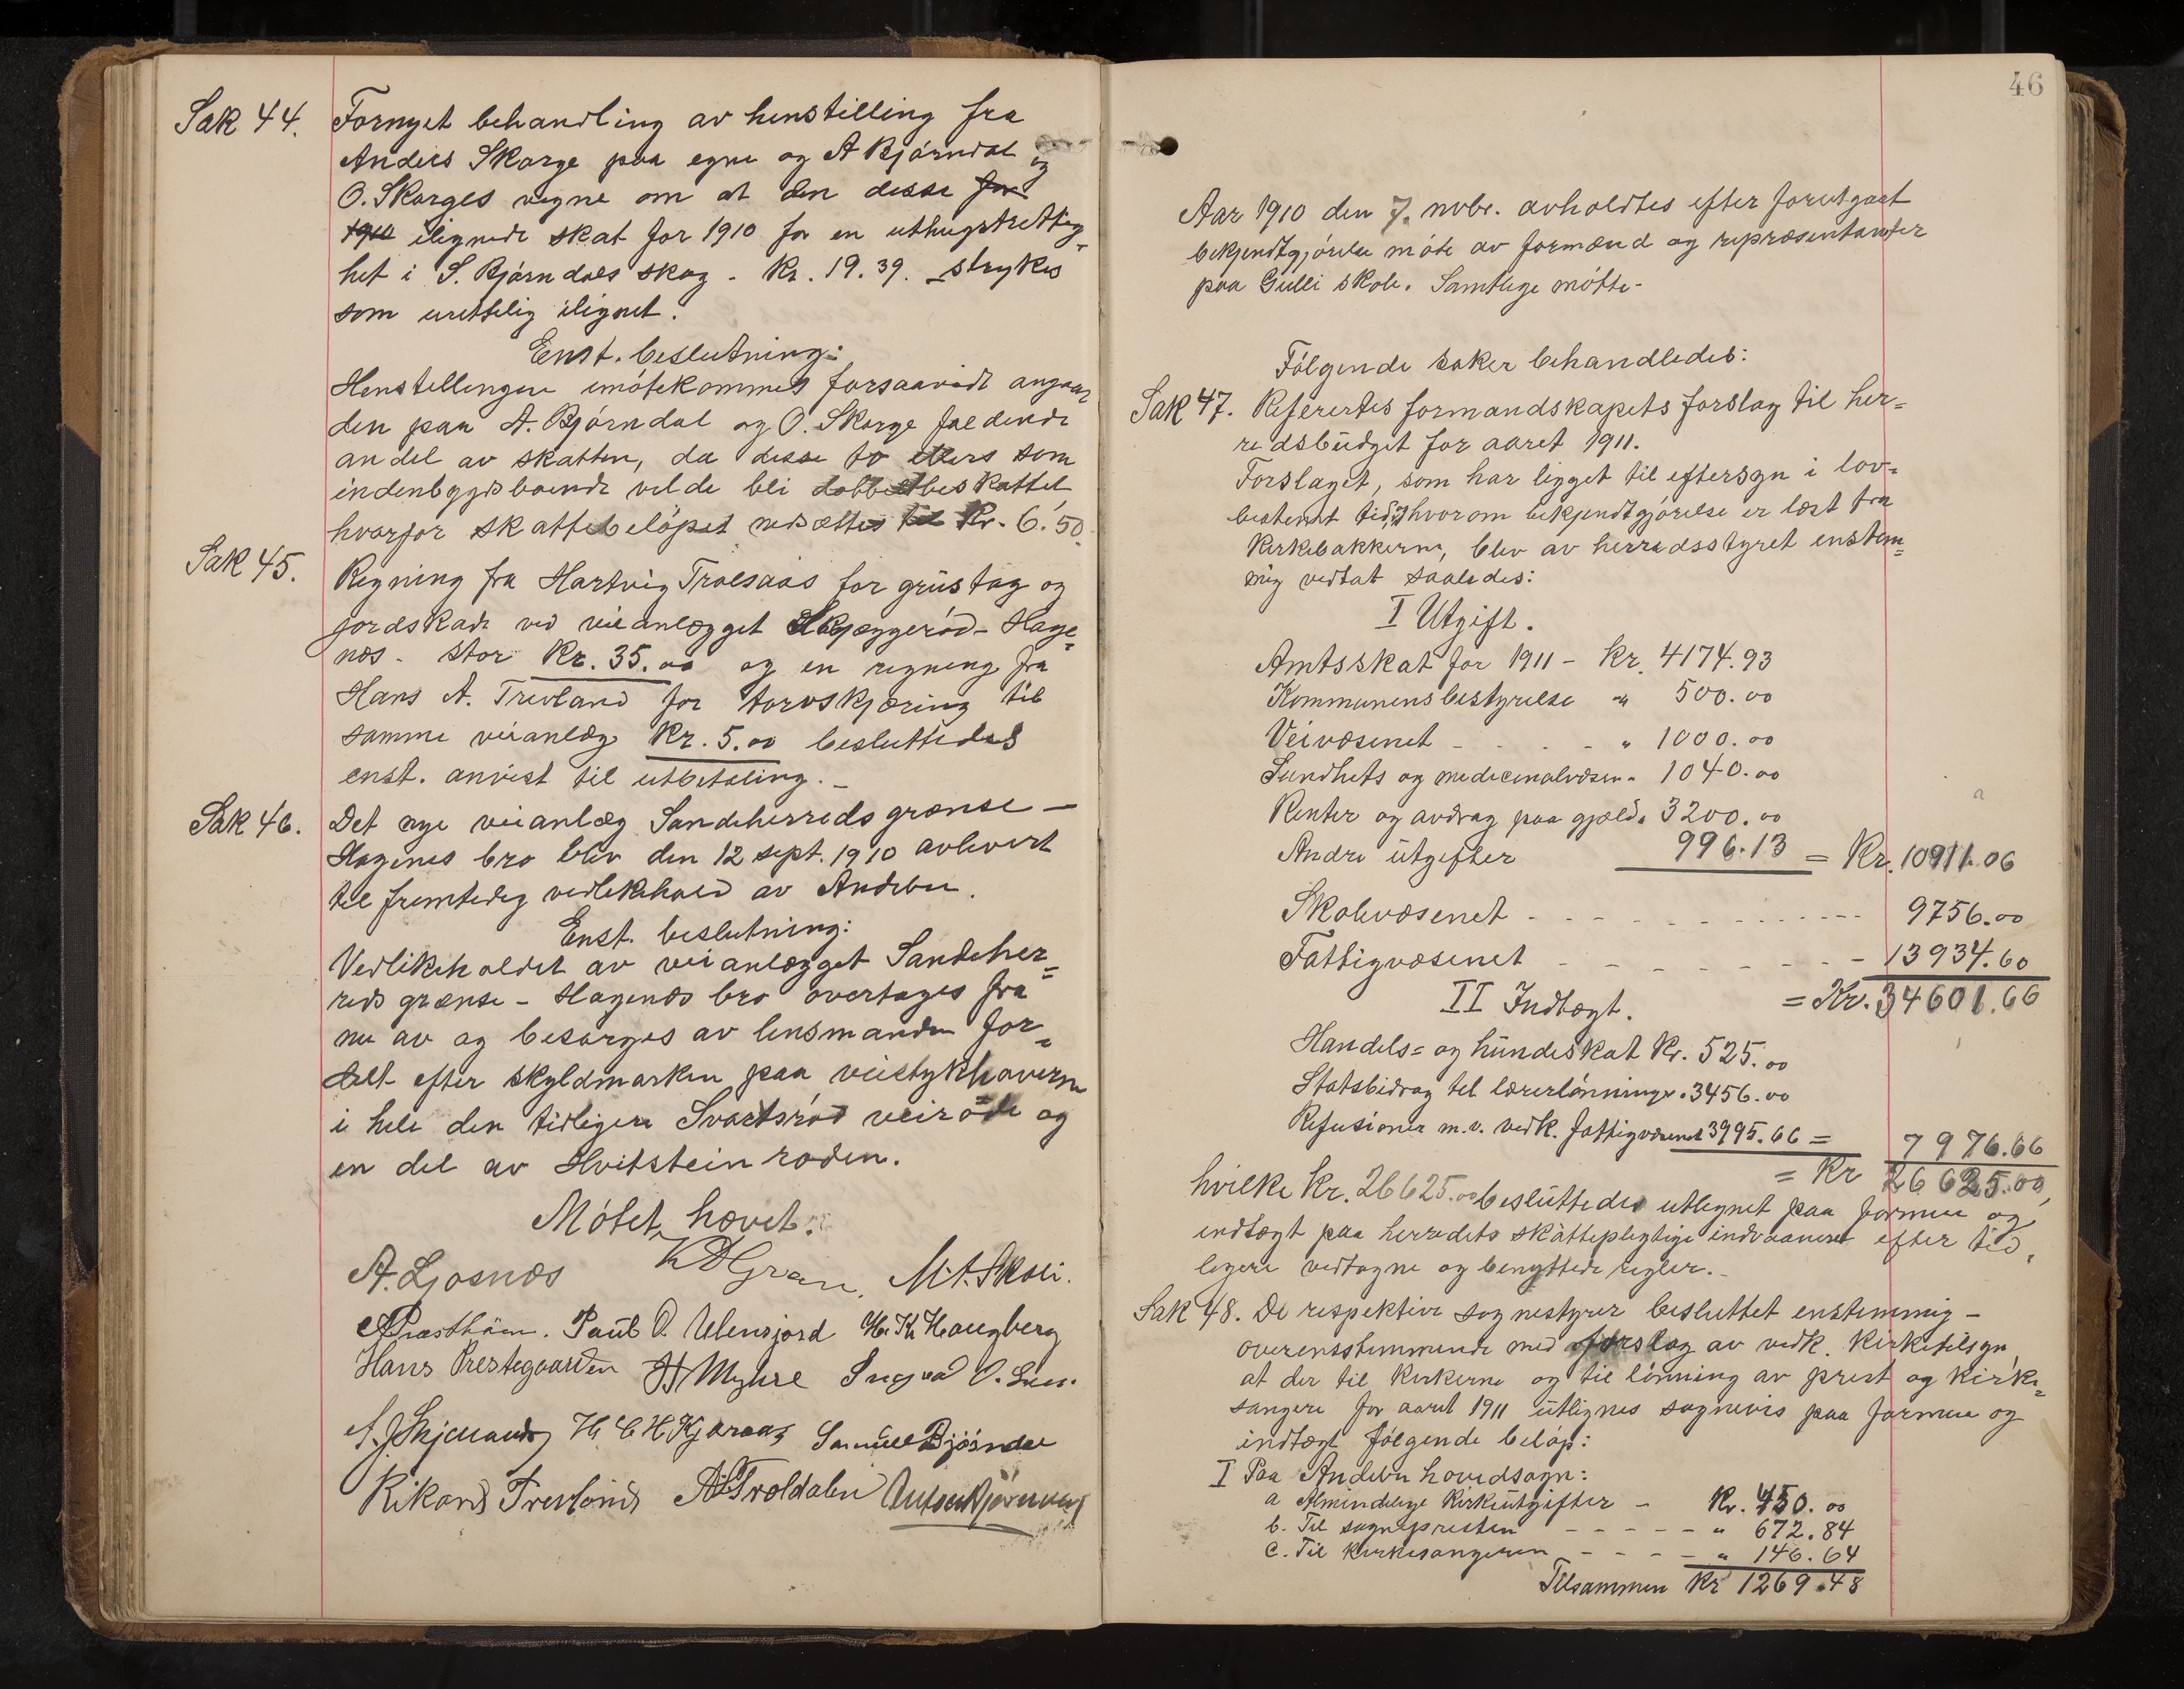 Sak 44. Fornyet behandling av henstilling fra
Anders Skorge paa egne og A Bjørndal og
O. Skorges vegne om at den disse for
1910 ilignede skat for 1910 for en uthugstrettig-
het i S. Bjørndals skog - Kr. 19.39. strykes
som urettelig ilignet.
Enst. beslutning:
Henstillingen imøtekommes forsaavidt angaar
den paa A. Bjørndal og O. Skorge faldende
andel av skatten, da disse to ellers som
indenbygdsboende vilde bli dobbeltbeskattet
hvorfor skattebeløpet nedsættes til Kr. 6.50.
Sak 45. Regning fra Hartvig Trolsaas for grustag og
jordskade ved veianlægget Skjæggerød - Hage-
næs - stor Kr. 35.00 og en regning fra
Hans A. Trevland for torvskjæring til
samme veianlæg Kr. 5.00 besluttedes
enst. anvist til utbetaling. -
Sak 46. Det nye veianlæg Sandeherreds grænse -
Hagenes bro blev den 12 sept. 1910 avlevert
til fremtidig vedlikehold av Andebu.
Enst. beslutning:
Vedlikeholdet av veianlægget Sandeher-
reds grænse - Hagenæs bro overtages fra
nu av og besørges av lensmanden for-
delt efter skyldmarken paa veistykhaverne
i hele den tidligere Svartsrød veirode og
en del av Hvitstein roden.
Møtet hævet.
A. Ljosnæs K D Gran, M. A. Skoli.
A Præsthun. Paul O. Ulensjord H. K. Haugberg
Hans Prestegaarden H Myhre Ingvald O. Lien.
H C H Kjæraas Samuel Bjørndal
Rikard Trevland A Troldalen Anton Bjørndal
46
Aar 1910 den 7. nvbr. avholdtes efter forutgaat
bekjendtgjørelse møte av formænd og repræsentanter
paa Gulli skole. Samtlige møtte -
Følgende saker behandledes:
Sak 47. Refererdes formandskapets forslag til her-
redsbudget for aaret 1911.
Forslaget, som har ligget til eftersyn i lov-
bestemt tid, hvorom bekjendtgjørelse er læst fra
Kirkebakkerne, blev av herredsstyret enstem-
mig vedtat saaledes:
I Utgift.
Amtsskat for 1911 - Kr. 4174.93
Kommunensbestyrelse " 500.00
Veivæsenet - - - - " 1000.00
Sundhets og medicinalvæsen " 1040.00
Renter og avdrag paa gjæld " 3200.00
Andre utgifter 996.13 = Kr. 10911.06
Skolevæsenet - - - - - - - - 9756.00
Fattigvæsenet - - - - - - - - 13934.60
II Indtægt. = Kr. 34601.66
Handels= og hundeskat Kr. 525.00
Statsbidrag til lærerlønninger " 3456.00
Refusioner m.v. vedk. fattigvæsenet 3995.66 = 7976.66
= Kr 26625.00,
hvilke Kr. 26625.00 besluttedes utlignet paa formue og
indtægt paa herredets skattepligtige indvaanere efter tid-
ligere vedtagne og benyttede regler. -
Sak 48. De respektive sognestyrer besluttet enstemmig -
overensstemmende med forslag av vedk. Kirketilsyn,
at der til kirkerne og til lønning av prest og kirke-
sangere for aaret 1911 utlignes sognevis paa formue og
indtægt følgende beløp:
I Paa Andebu hovedsogn:
a Almindelige Kirkeutgifter - Kr. 450.00
b. Til sognepresten - - - - - " 672.84
c. Til Kirkesangeren - - - - " 146.64
Tilsammen Kr 1269.48